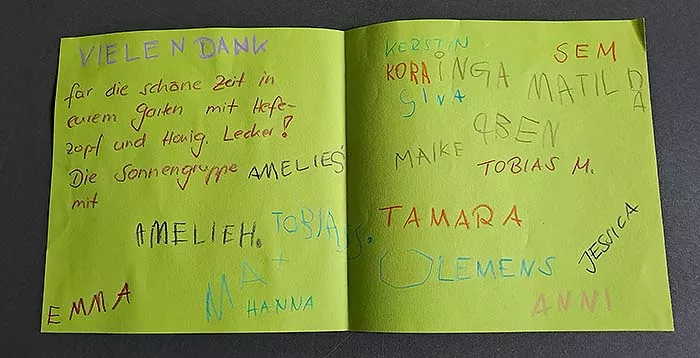 VIELEN DANK
für die schöne Zeit in
eurem Garten mit Hefe-
zopf und Honig. Lecker!
Die Sonnengruppe
mit
AMELIE S.
AMELIE H.
TOBIAS S.
EMMA
MAX
HANNA
KERSTIN
KORA
INGA
GINA
SEM
MATILDA
MAIKE
TOBIAS M.
TAMARA
CLEMENS
JESSICA
ANNI